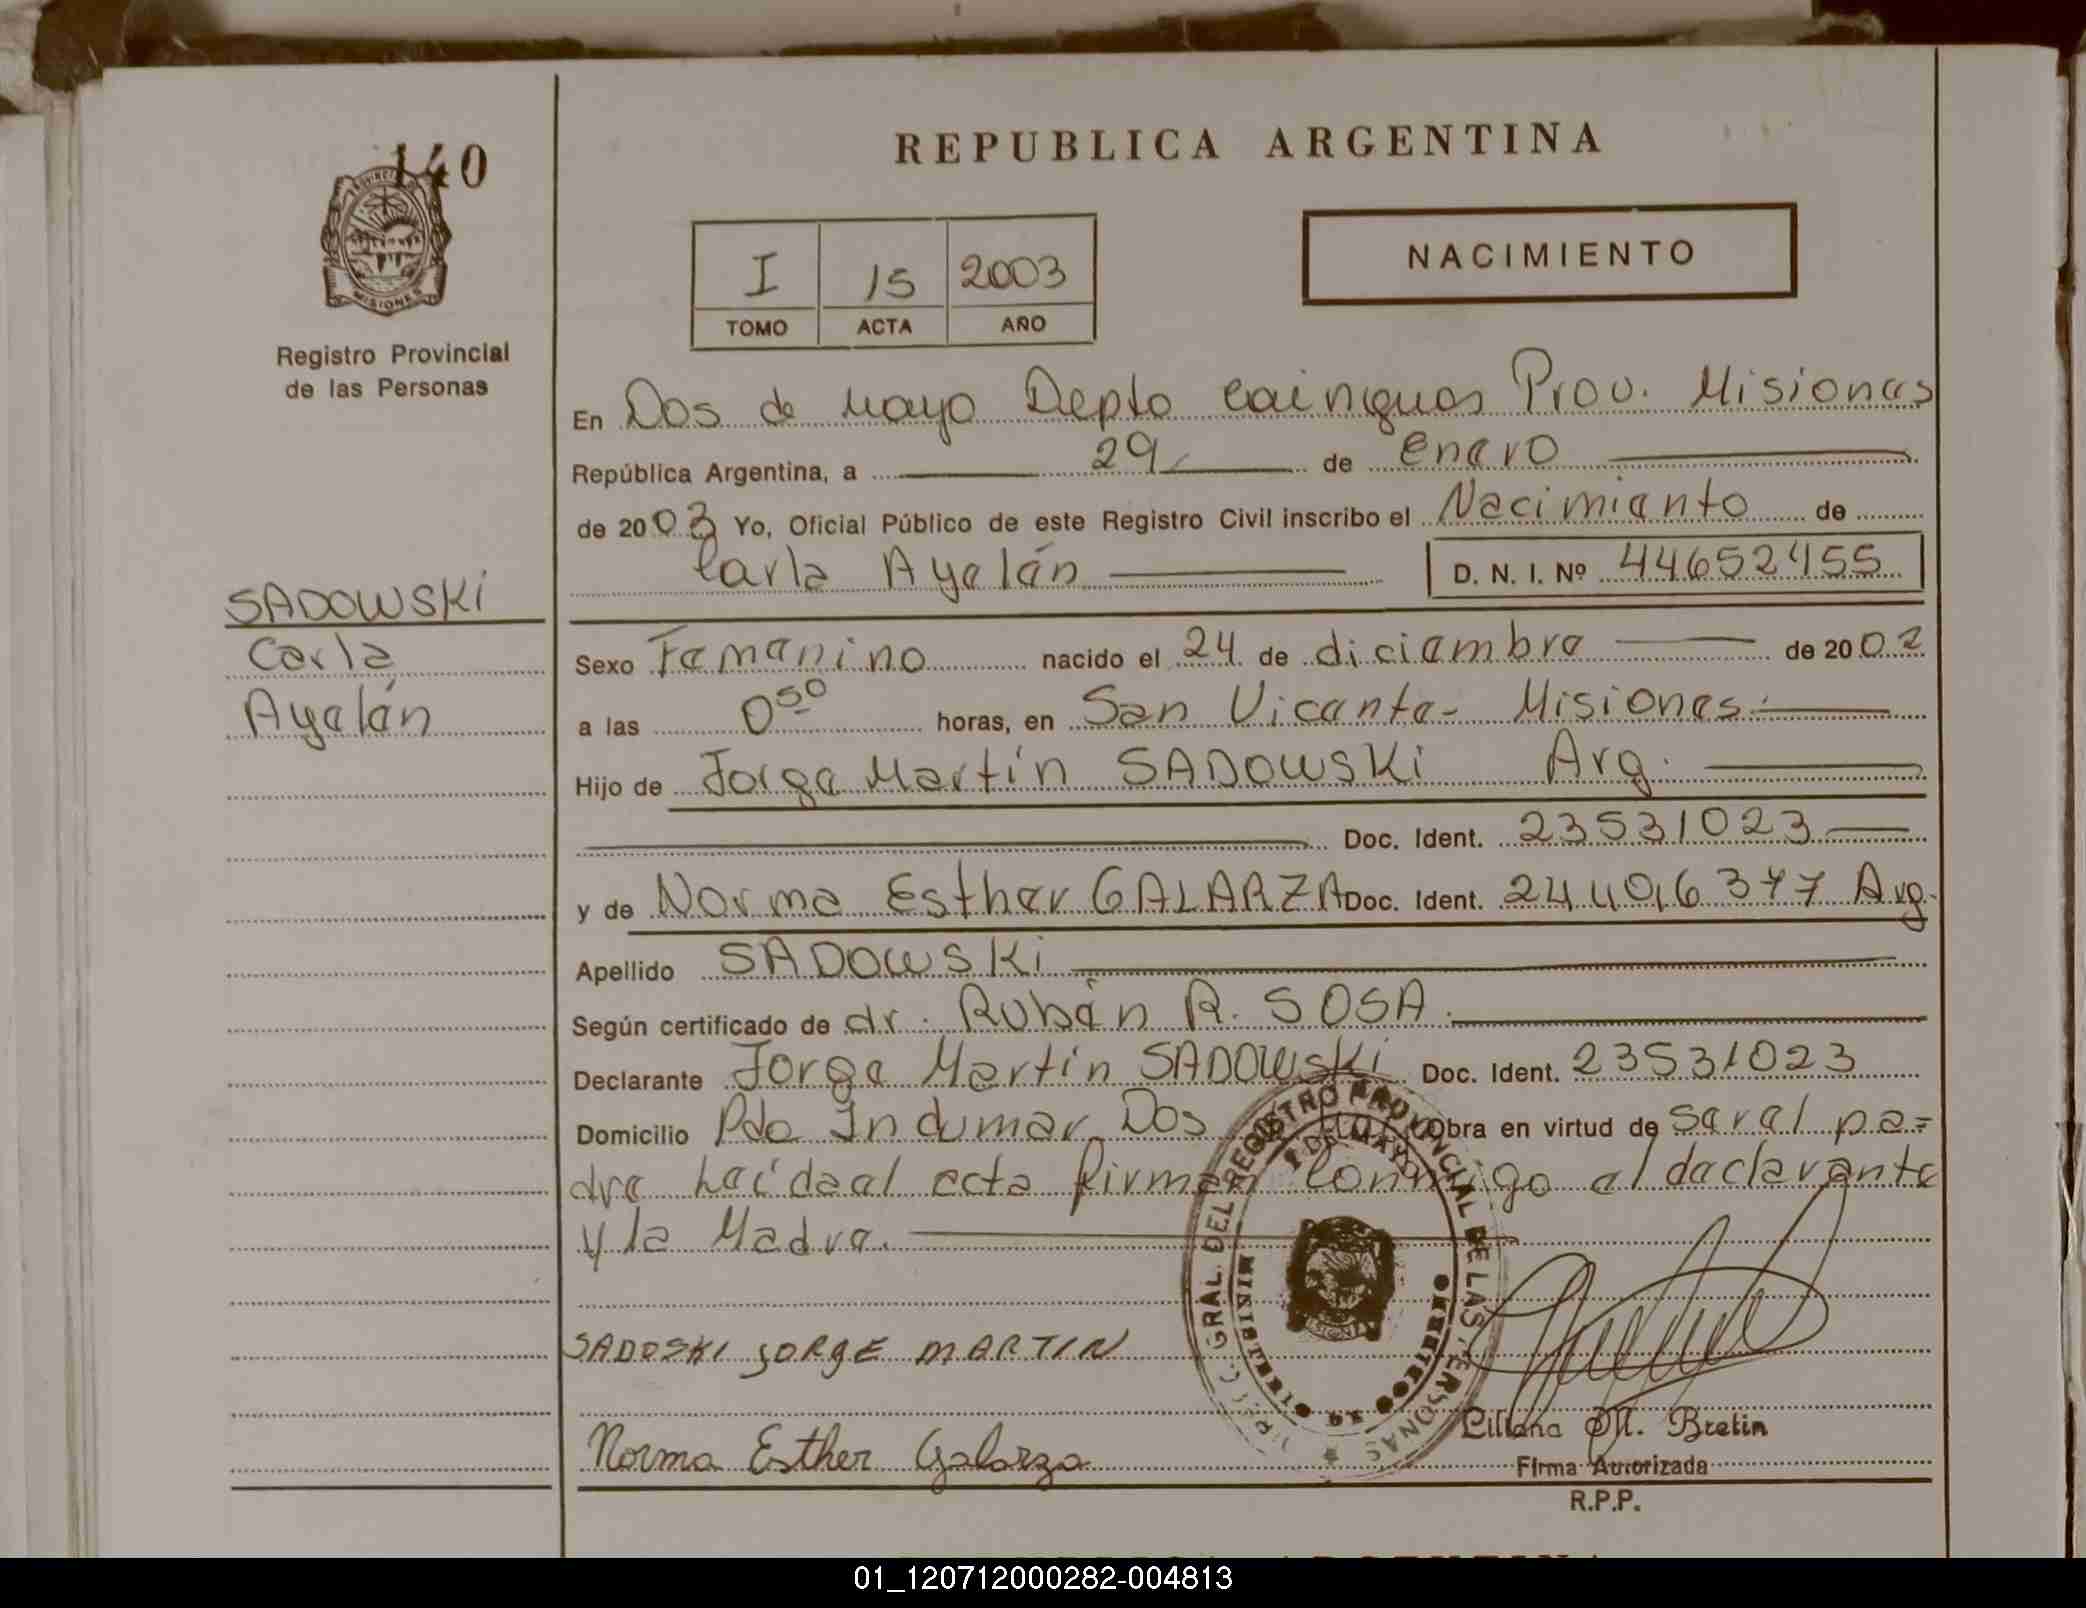 140
REPUBLICA ARGENTINA
PROVINCIA DE
MISIONES
Registro Provincial
de las Personas
I 15 2003
TOMO ACTA AÑO
NACIMIENTO
En Dos de Mayo Depto Cainguas Prov. Misiones
República Argentina, a 29 de enero
de 2003 Yo, Oficial Público de este Registro Civil inscribo el Nacimiento de
Carla Ayelén D. N. I. Nº 44652455
SADOWSKi
Carla
Ayelén
Sexo Femenino nacido el 24 de diciembre de 2002
a las 0⁵⁰ horas, en San Vicente- Misiones.
Hijo de Jorge Martín SADOWSKi Arg.
Doc. Ident. 23531023
y de Norma Esther GALARZA Doc. Ident. 24406377 Arg.
Apellido SADOWSKi
Según certificado de dr. Rubén R. SOSA.
Declarante Jorge Martín SADOWSKi Doc. Ident. 23531023
Domicilio Pdo Indumar Dos Obra en virtud de ser el pa=
dre Leída el acta firman Conmigo el declarante
y la Madre.
GRAL. DEL REGISTRO PROVINCIAL DE LAS PERSONAS
MINISTERIO DE
DE MAYO
SADOSKI JORGE MARTIN
Norma Esther Galarza
Liliana M. Bretin
Firma Autorizada
R.P.P.
01_120712000282-004813